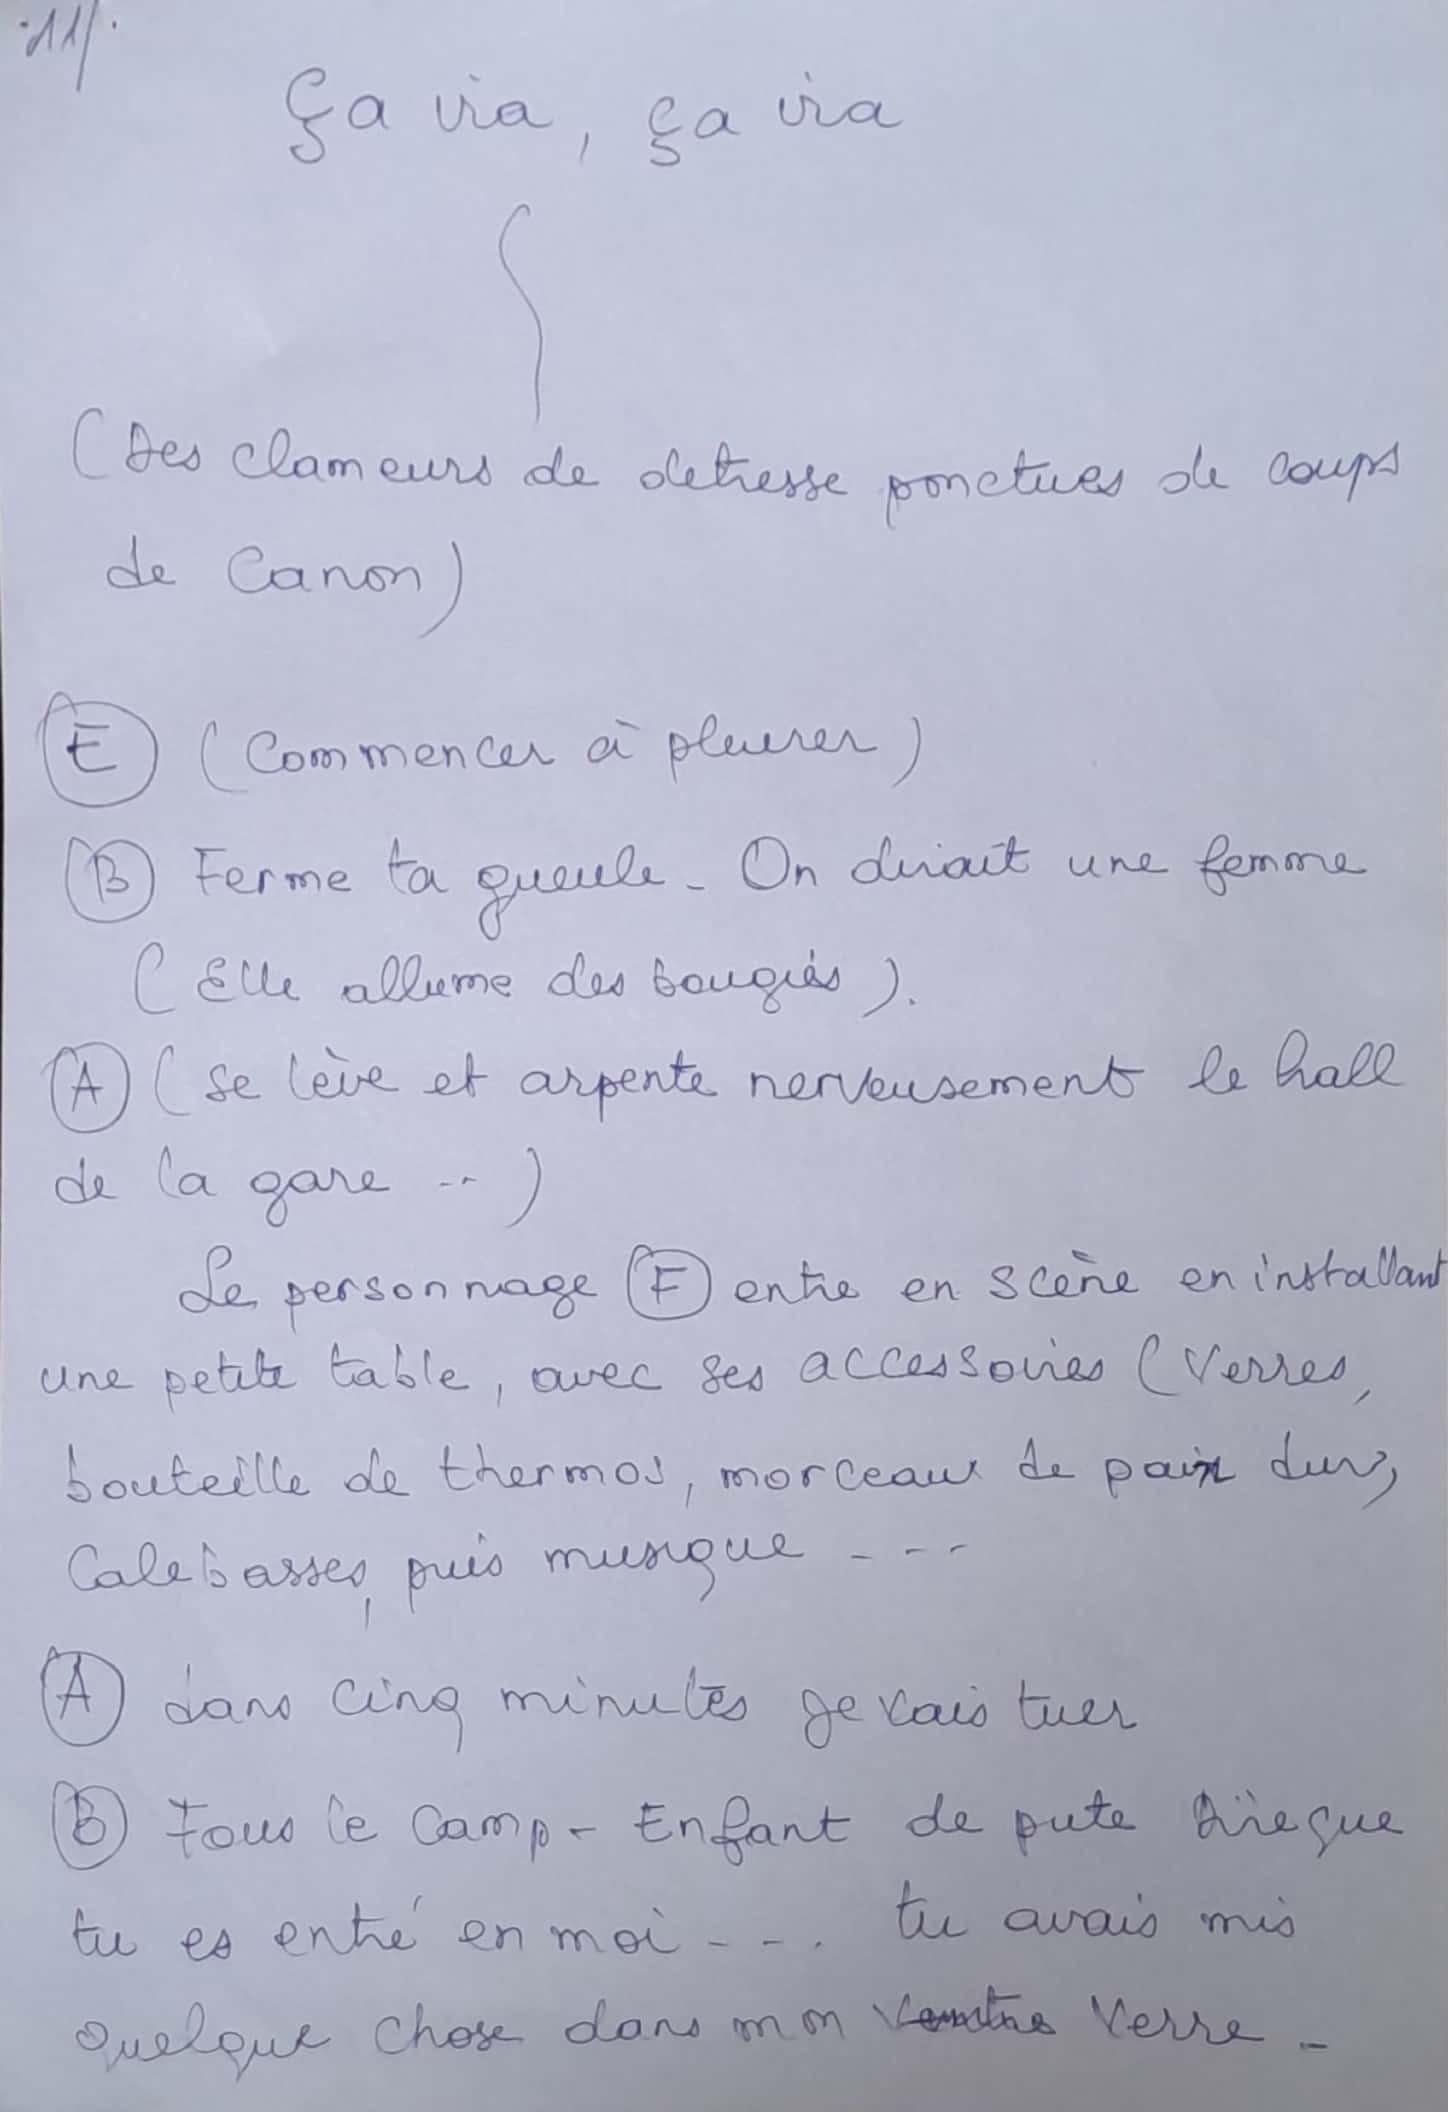 .11/.
Ça ira, ça ira
(Des clameurs de detresse ponctues de coups
de Canon)
E (Commencer à pleurer)
B Ferme ta gueule - On dirait une femme
(Elle allume des bougies).
A (se lève et arpente nerveusement le hall
de la gare ...)
Le personnage F entre en scène en installant
une petite table, avec ses accessoires (Verres,
bouteille de thermos, morceaux de pain durs,
Calebasses, puis musique ----
A dans cinq minutes je vais tuer
B Fous le Camp - Enfant de pute Dire que
tu es entré en moi ---. tu avais mis
quelque chose dans mon Verre -